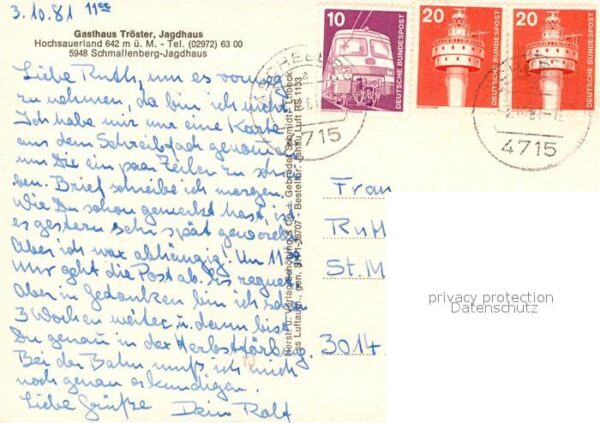 3.10.81 11⁰⁰
Gasthaus Tröster, Jagdhaus
Hochsauerland 642 m ü. M. - Tel. (02972) 63 00
5948 Schmallenberg-Jagdhaus
Liebe Ruth, um es vorweg
zu nehmen, da bin ich nicht.
Ich habe mir nur eine Karte
aus dem Schreibfach genommen
um Dir ein paar Zeilen zu schrei
ben. Brief schreibe ich morgen.
Wie Du schon gemerkt hast, ist
es gestern sehr spät geworden.
Aber ich war abhängig! Um 11
Uhr geht die Post ab. Es regnet
Aber in Gedanken bin ich schon
3 Wochen weiter u. dann bist
Du genau in der Herbstfärbg.
Bei der Bahn muß ich mich
noch genau erkundigen.
Liebe Grüße Dein Rolf
Herst. u. Verlag Schöning & Co + Gebrüder Schmidt, Lübeck
Bestellnr. Jahau Luft RS 1133
10
DEUTSCHE BUNDESPOST
20
DEUTSCHE BUNDESPOST
20
DEUTSCHE BUNDESPOST
4715
4715
Frau
Ruth
St. M
3014
privacy protection
Datenschutz